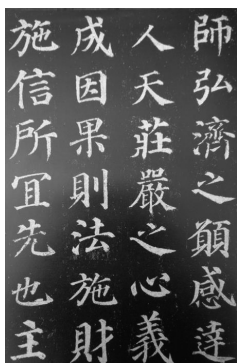 師弘濟之願感達
人天莊嚴之心義
成因果則法施財
施信所冝先也主